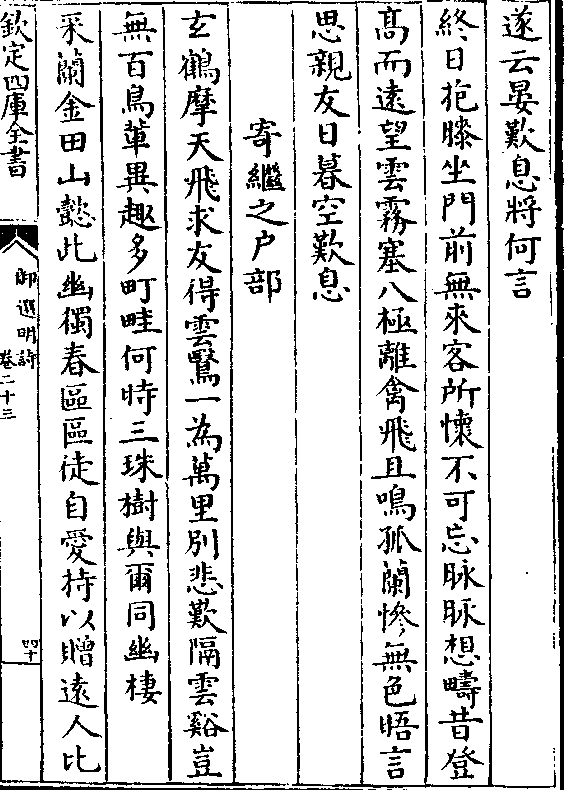 遂云晏歎息將何言
終日抱膝坐門前無來客所懷不可忘脉脉想疇昔登
髙而遠望雲霧塞八極離禽飛且鳴孤蘭慘無色晤言
思親友日暮空歎息
寄繼之户部
玄鶴摩天飛求友得雲鷖一為萬里別悲歎隔雲谿豈
無百鳥羣異趣多町畦何時三珠樹與爾同幽棲
采蘭金田山懿此幽獨春區區徒自愛持以贈遠人比
欽定四庫全書
御選明詩
卷二十三
四十